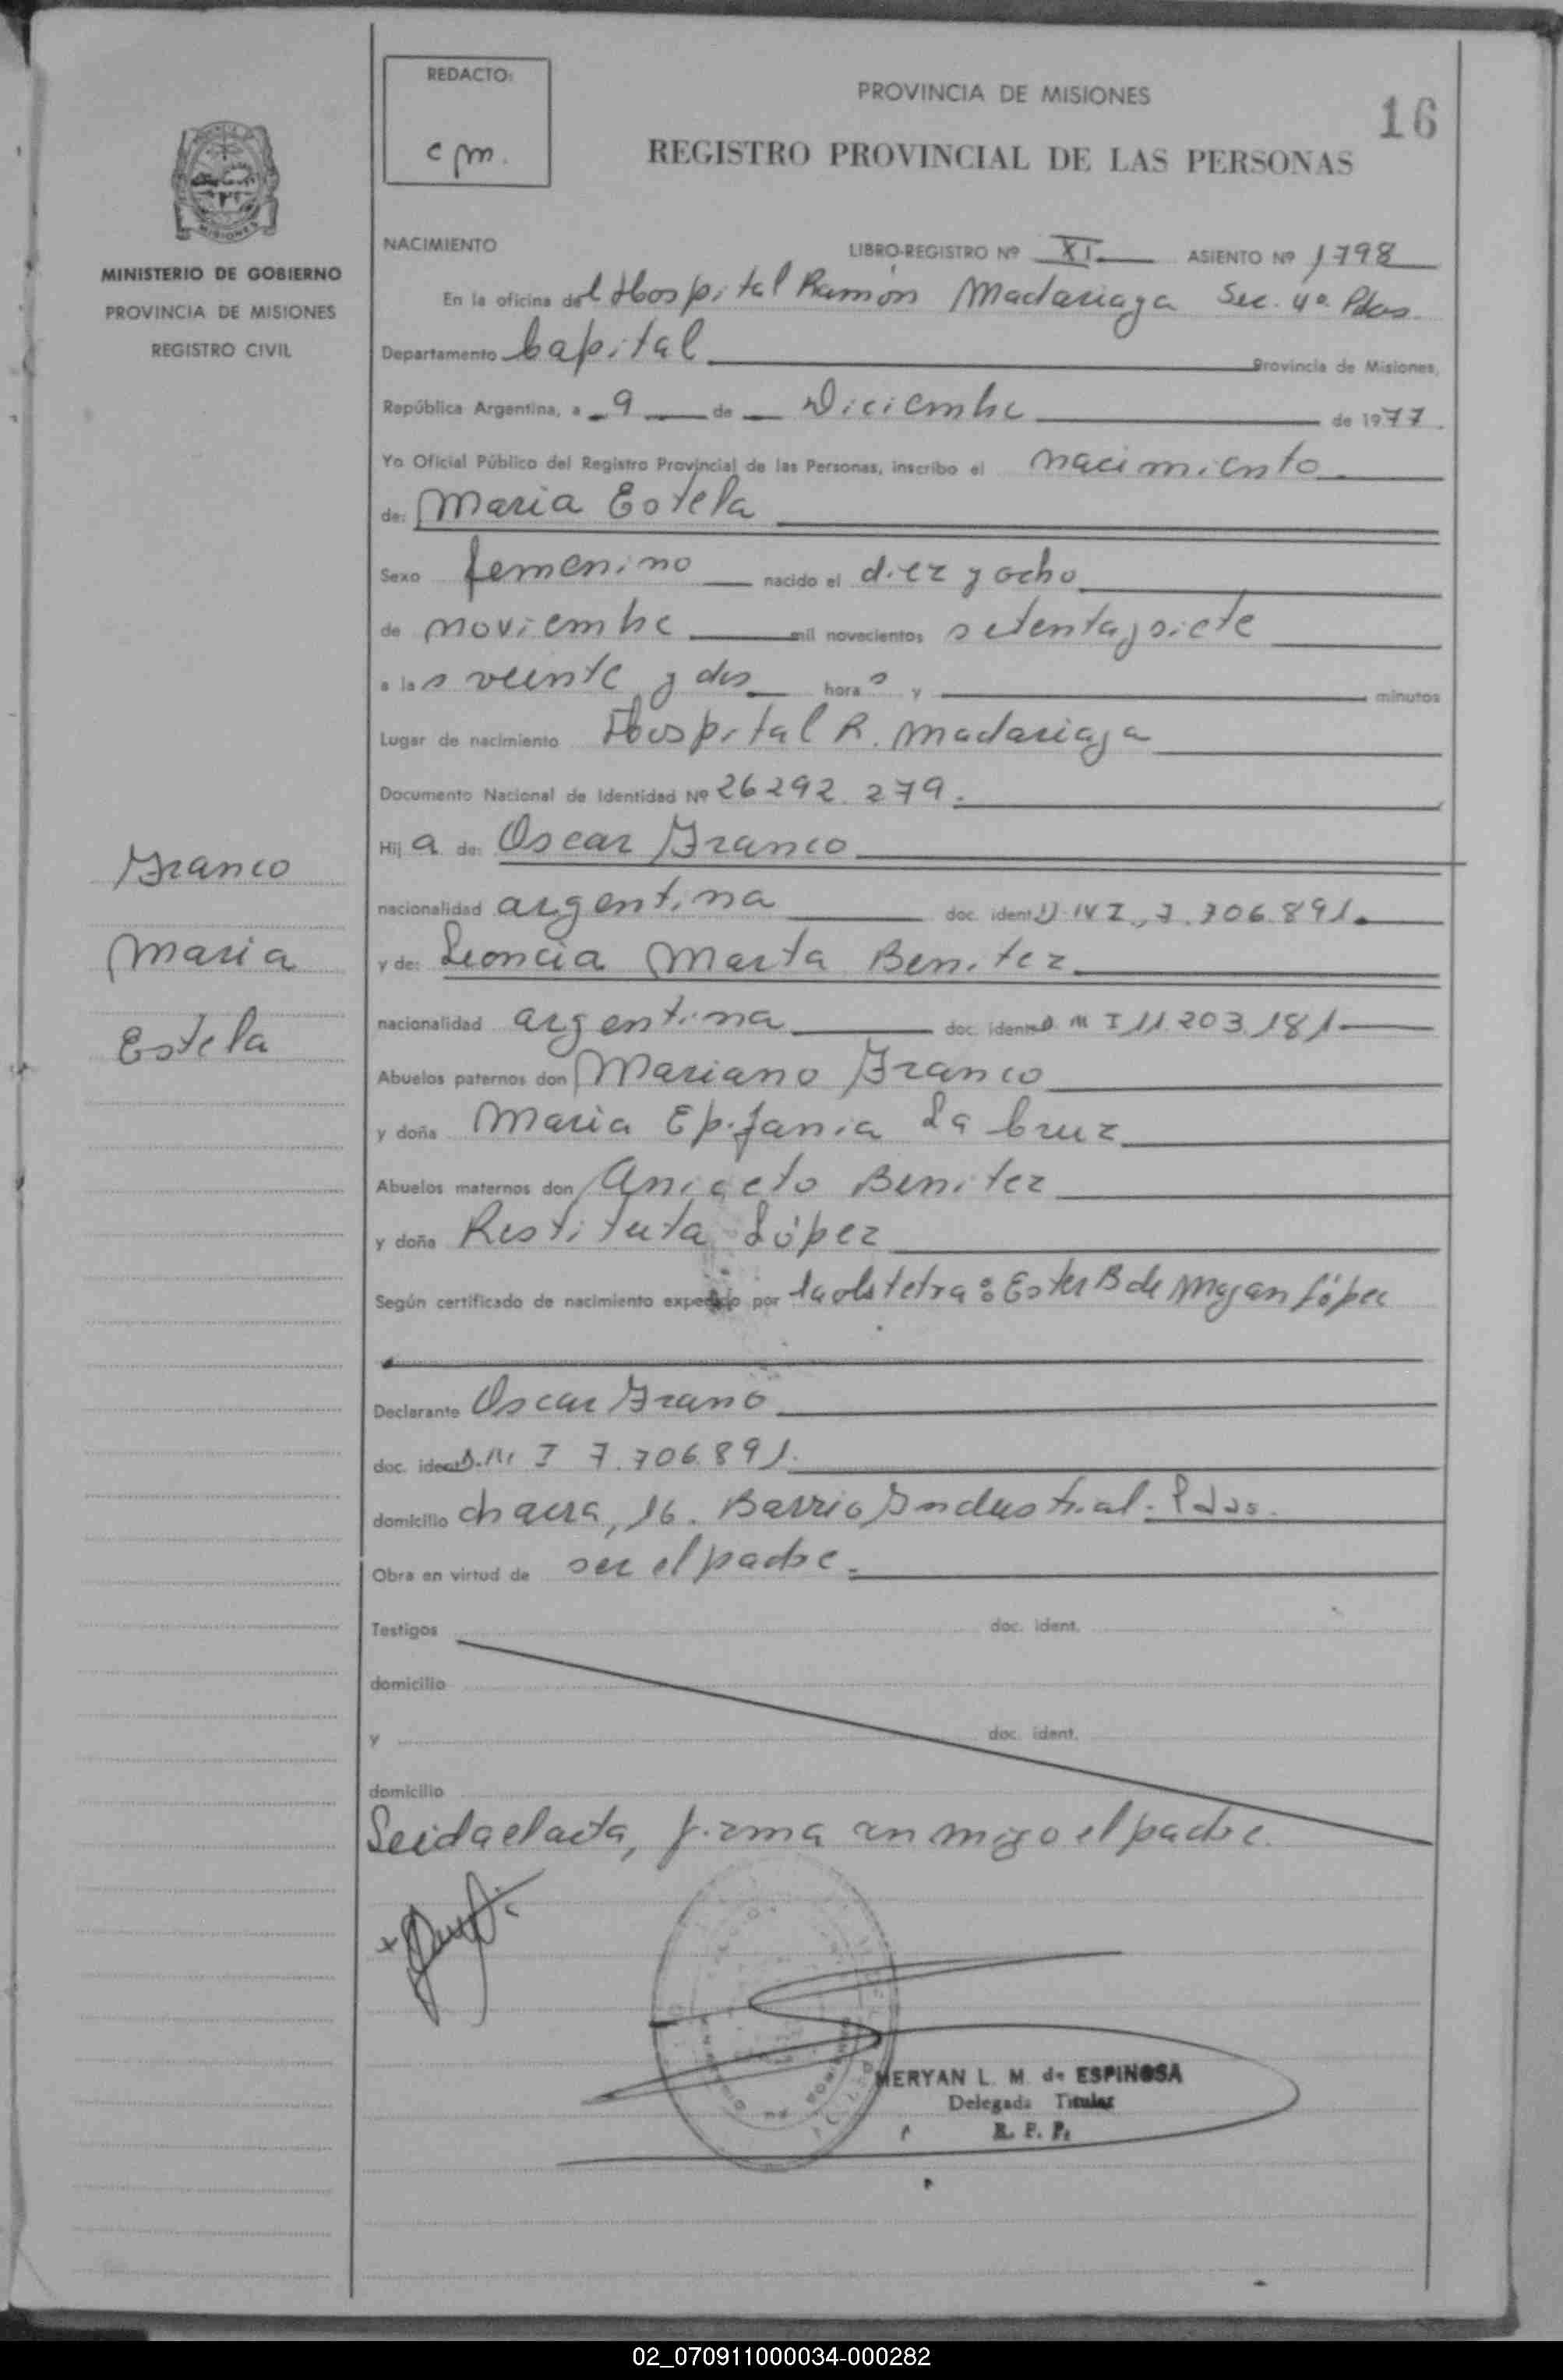 REDACTO:
c m.
PROVINCIA DE MISIONES
16
REGISTRO PROVINCIAL DE LAS PERSONAS
MISIONES
MINISTERIO DE GOBIERNO
PROVINCIA DE MISIONES
REGISTRO CIVIL
NACIMIENTO
LIBRO-REGISTRO Nº XI ASIENTO Nº 1798
En la oficina del Hospital Ramón Madariaga Sec. 4º Pdas.
Departamento Capital Provincia de Misiones,
República Argentina, a 9 de Diciembre de 1977.
Yo Oficial Público del Registro Provincial de las Personas, inscribo el nacimiento
de: Maria Estela
Sexo femenino nacido el diez y ocho
de noviembre mil novecientos setenta y siete
a las veinte y dos horas y minutos
Lugar de nacimiento Hospital R. Madariaga
Documento Nacional de Identidad Nº 26292.279.
Hija de: Oscar Franco
nacionalidad argentina doc. ident. 7.706.891.
y de: Leoncia Marta Benitez
nacionalidad argentina doc. ident. D M I 11.203.181
Abuelos paternos don Mariano Franco
y doña Maria Epifania La Cruz
Abuelos maternos don Aniceto Benitez
y doña Restituta López
Según certificado de nacimiento expedido por la obstetra: Ester B de López
Declarante Oscar Frano
doc. ident. I 7.706.891.
domicilio chacra, 16. Barrio Industrial. Pdas.
Obra en virtud de ser el padre.
Testigos doc. ident.
domicilio
y doc. ident.
domicilio
Leida el acta, firma conmigo el padre.
Franco
Maria
Estela
MERYAN L. M. de ESPINOSA
Delegada Titular
R. P. P.
02_070911000034-000282